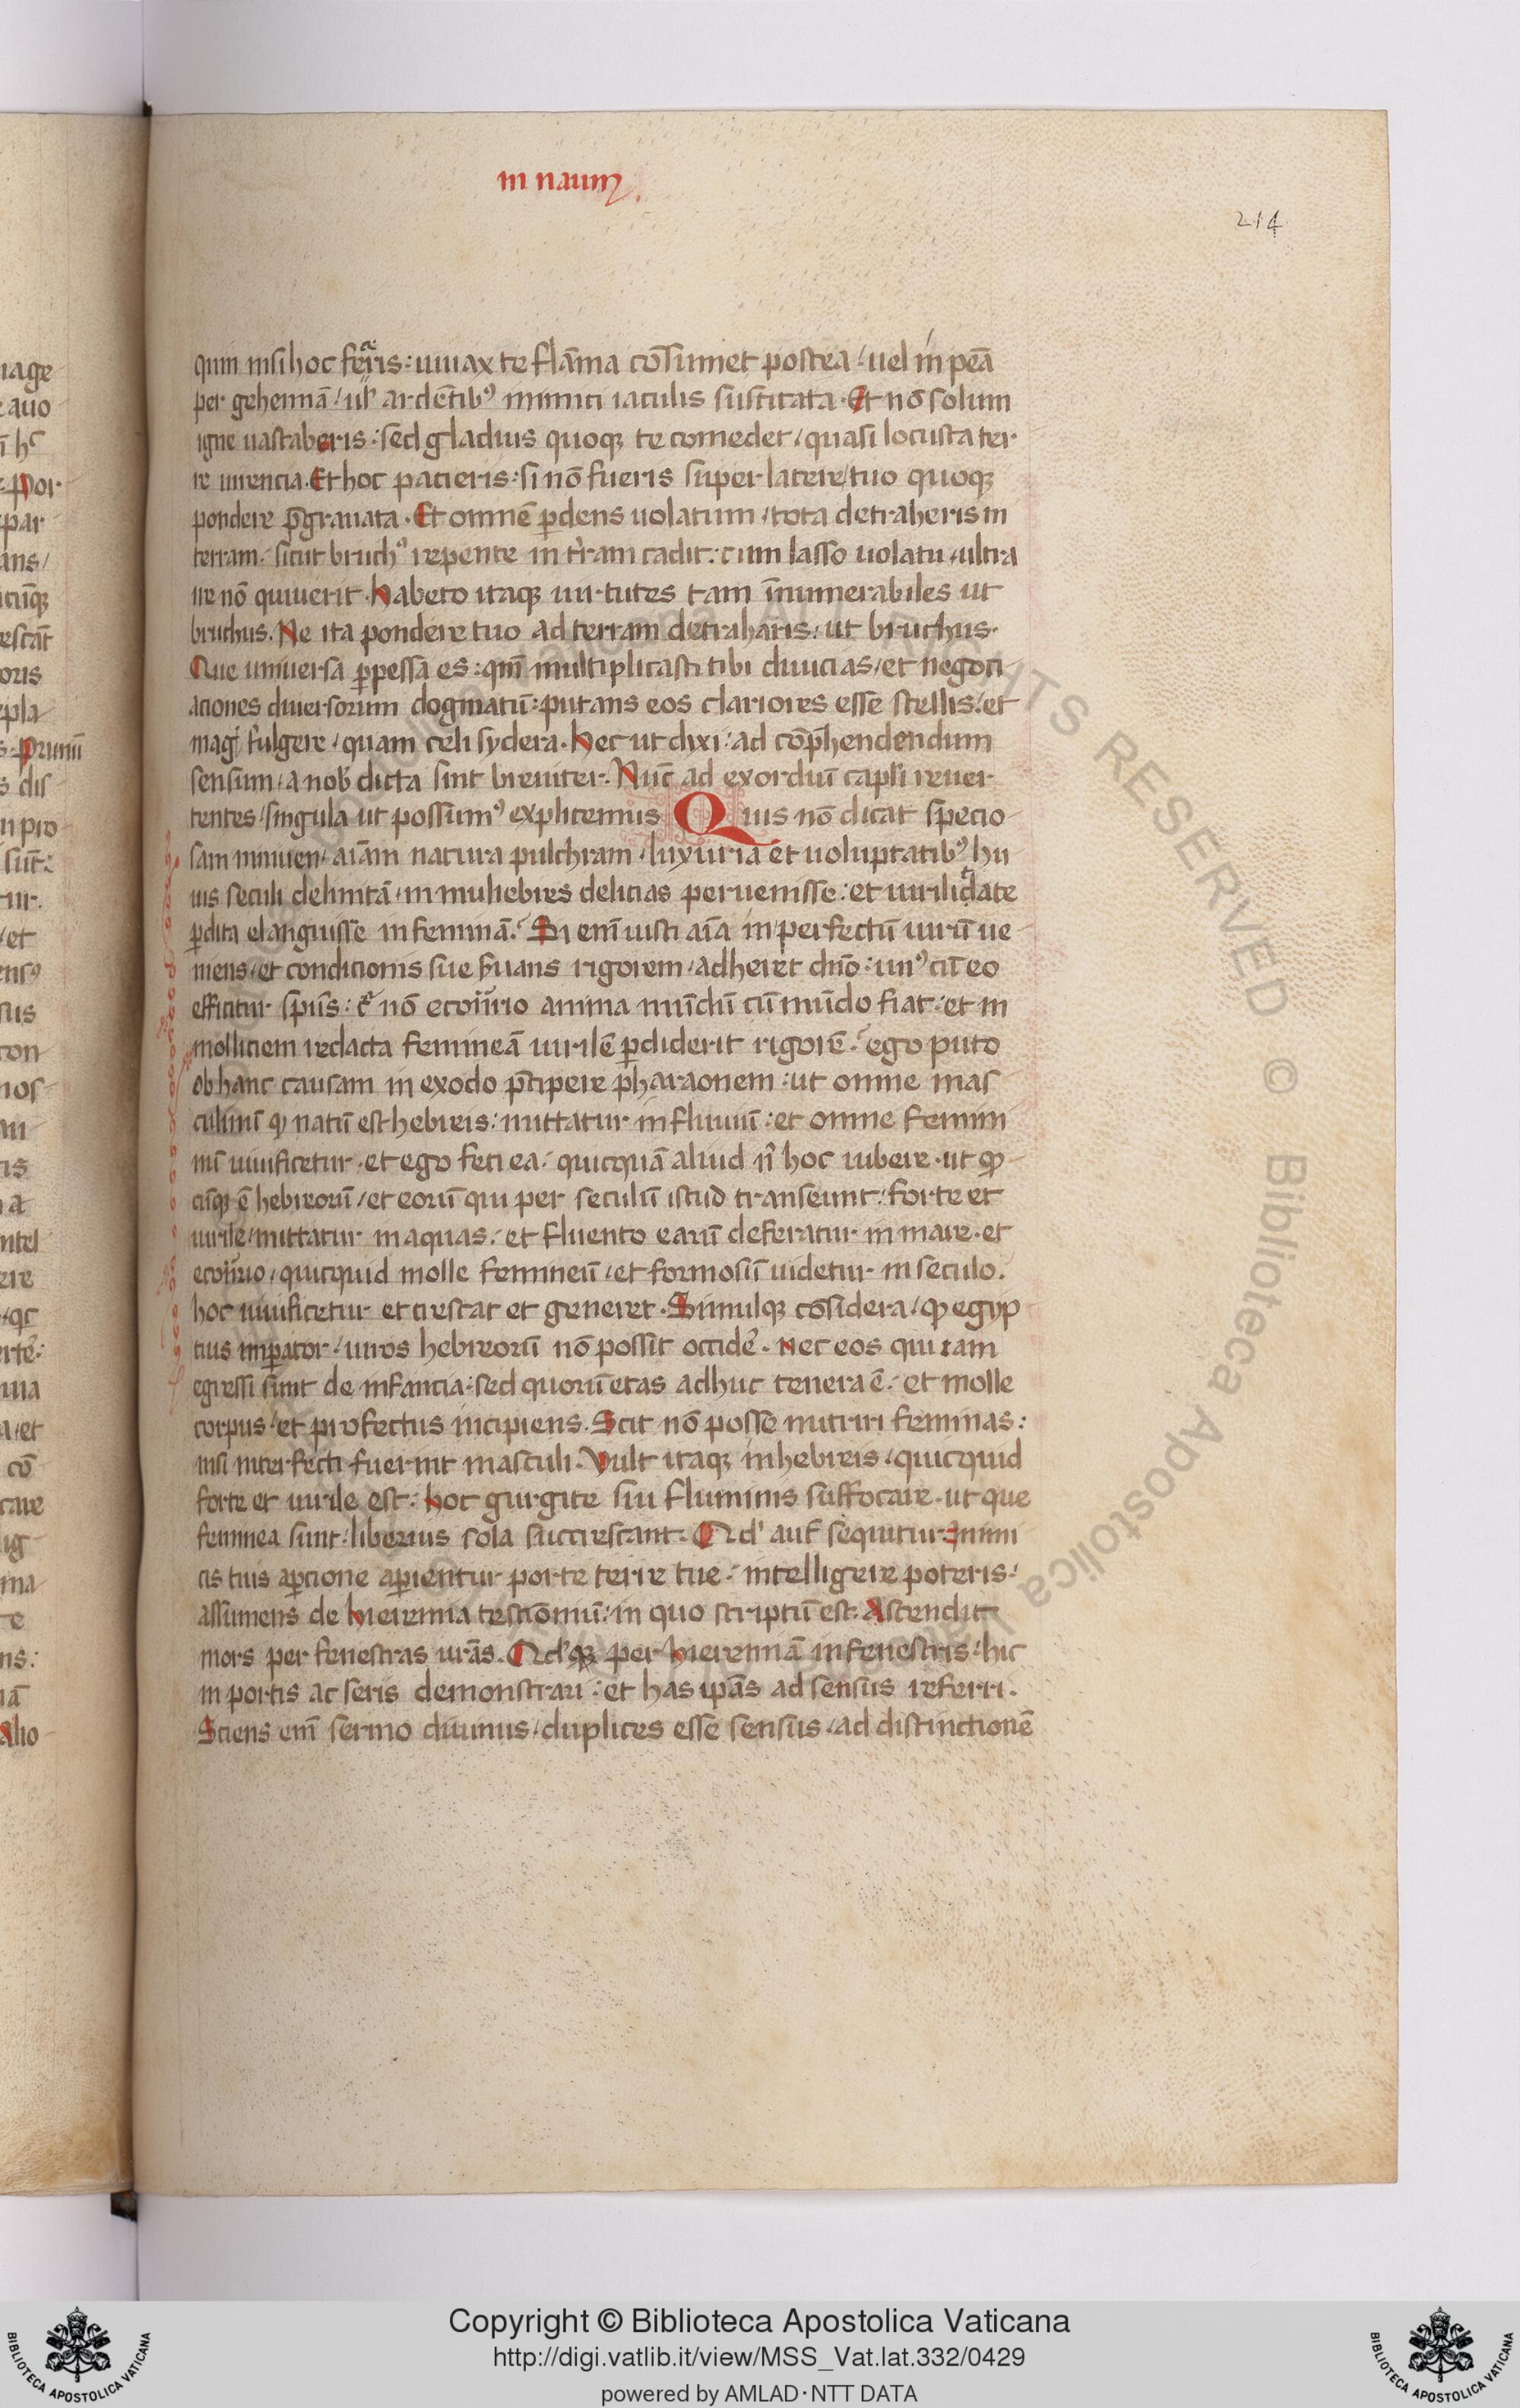 in naum.
214
quin nisi hoc feceris: uiuax te flāma cōsumet postea / uel in peā
per gehennā / ul' ardētibꝰ inimici iaculis suscitata. Et nō solum
igne uastaberis: sed gladius quoqꝫ te comedet / quasi locusta ter
re uirencia. Et hoc pacieris: si nō fueris super latere / tuo quoqꝫ
pondere p̄grauata. Et omnē ꝑdens uolatum / tota detraheris in
terram. sicut bruchꝰ repente in t̄ram cadit: cum lasso uolatu / ultra
ire nō quiuerit. Habeto itaqꝫ uirtutes tam īnumerabiles ut
bruchus. Ne ita pondere tuo ad terram detraharis: ut bruchus.
Que uniuersa ꝑpessa es: qm̄ multiplicasti tibi diuicias / et negoci
aciones diuersorum dogmatū: putans eos clariores esse stellis: et
magꝭ fulgere / quam celi sydera. Hec ut dixi: ad cōp̄hendendum
sensum / a nobꝭ dicta sint breuiter. Nūc ad exordiū capl'i reuer
tentes / singula ut possumꝰ explicemus. Quis nō dicat specio
sam iniuuen / aīam natura pulchram / luxuria et uoluptatibꝰ hu
ius seculi delinitā / in muliebres delicias peruenisse: et uirilitate
ꝑdita elanguisse in feminā. Si enī iusti aīa in perfectū uirū ue
niens / et condicionis sue s̄uans rigorem / adheret dn̄o: unꝰ cū eo
efficitur spūs: cᵃ nō econtrario anima mūdū cū mūdo fiat: et in
molliciem redacta femineā uirilē ꝑdiderit rigorē. ego puto
ob hanc causam in exodo p̄cipere pharaonem: ut omne mas
culinū qꝫ natū est hebreis: mittatur in fluuiū: et omne femini
nū uiuificetur. et ego feci ea: quicquā aliud nᶦ hoc iubere. ut qꝫ
cūqꝫ ē hebreorū / et eorū qui per seculū istud transeunt: forte et
uirile / mittatur in aquas: et fluento earū deferatur in mare. et
econtrario / quicquid molle femineū / et formosū uidetur in seculo.
hoc uiuificetur et crescat et generet. Simulqꝫ cōsidera / qꝫ egyp
tius imꝑator / uiros hebreorū nō possit occidē. nec eos qui iam
egressi sunt de infancia: sed quorū etas adhuc tenera ē: et molle
corpus / et profectus incipiens. Scit nō posse nutriri feminas:
nisi interfecti fuerint masculi. Vult itaqꝫ in hebreis / quicquid
forte et uirile est: hoc gurgite sui fluminis suffocare. ut que
feminea sunt / liberius sola succrescant. Qd' aut̄ sequitur. Inimi
cis tuis aꝑcione aꝑientur porte terre tue: intelligere poteris:
assumens de hieremia testiōnium: in quo scriptū est: Ascendit
mors per fenestras ur̄as. Qd'qꝫ per hieremiā in fenestris: hic
in portis ac seris demonstrari: et has ip̄as ad sensus referri.
Sciens enī sermo diuinus / duplices esse sensus / ad distinctionē
Copyright © Biblioteca Apostolica Vaticana
http://digi.vatlib.it/view/MSS_Vat.lat.332/0429
powered by AMLAD·NTT DATA
BIBLIOTECA APOSTOLICA VATICANA
BIBLIOTECA APOSTOLICA VATICANA